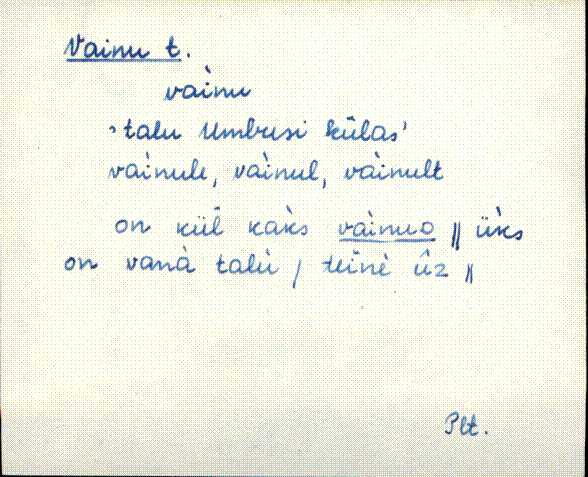 Vainu t.
vaìnu
'talu Umbusi külas'
vaìnule, vaìnul, vaìnult
on kül̄ kaks vaìnuo || üks
on vanà talù / teìnè ûz ||
Plt.